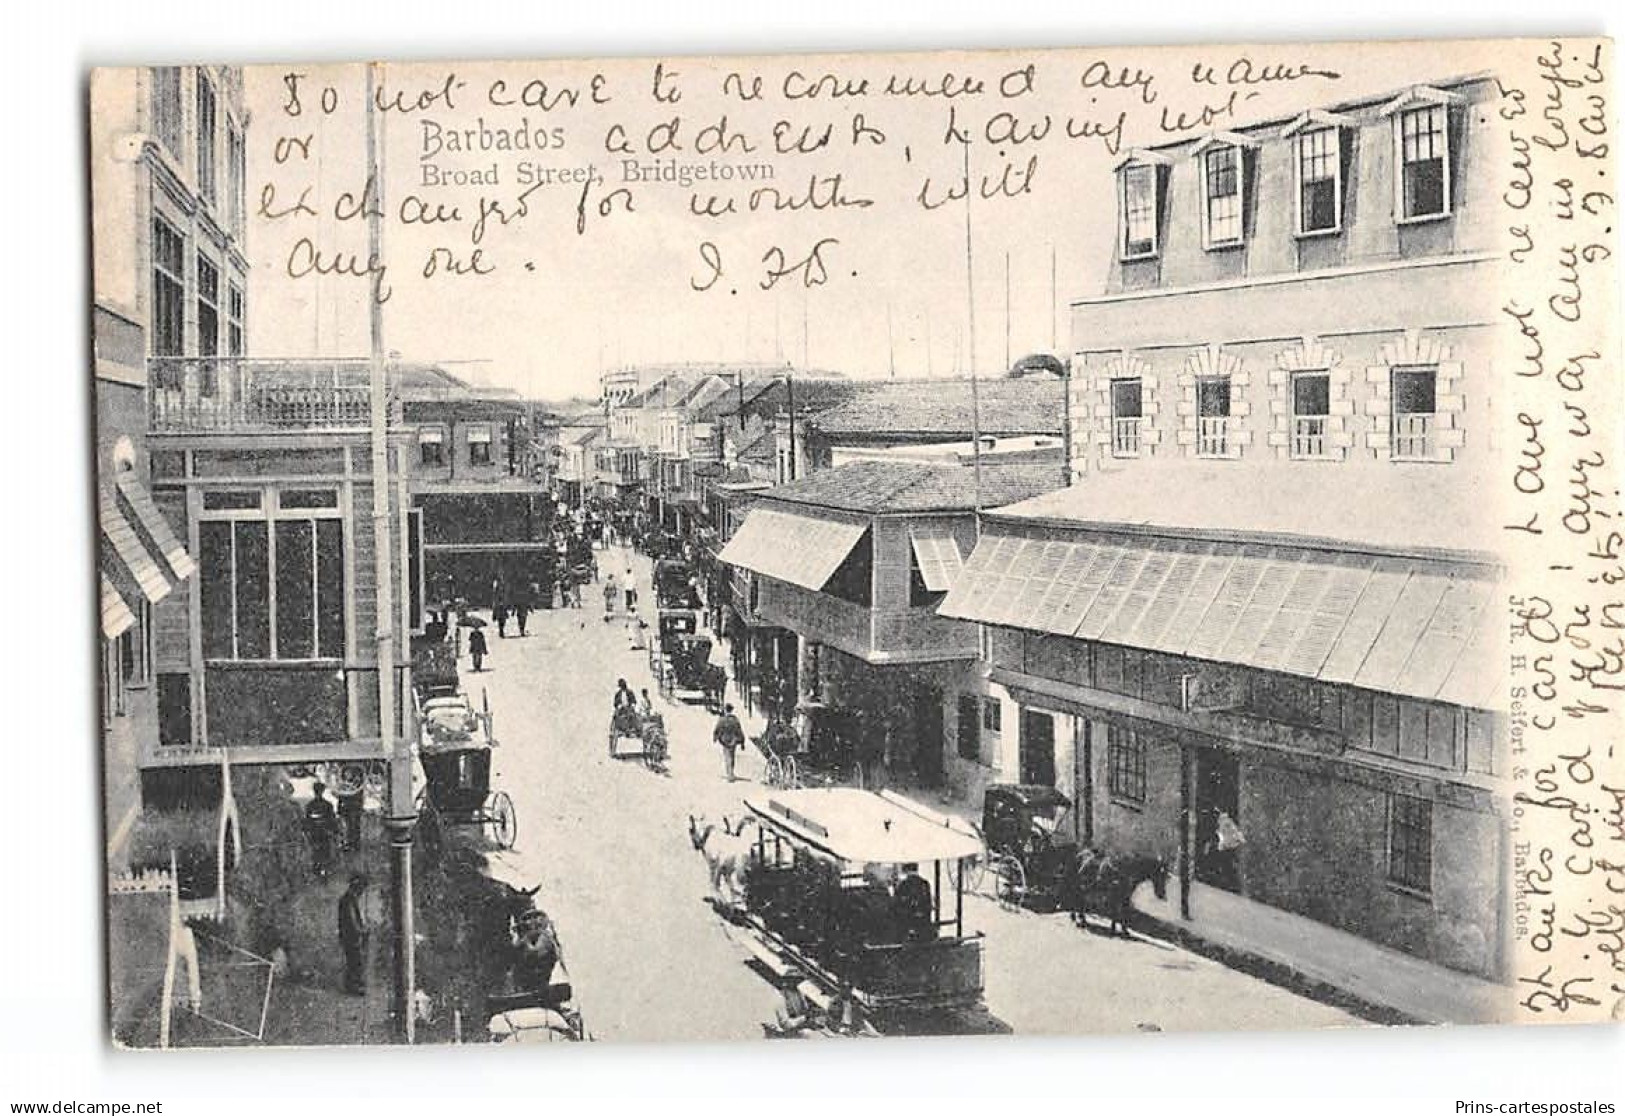 Do not care to recommend any names
or
Barbados
address, having not
Broad Street, Bridgetown
exchanged for months with
any one.
J. R. H. Seifert & Co., Barbados.
Thanks for card have not received
card you any way am no longer
collecting
www.delcampe.net
Prins-cartespostales